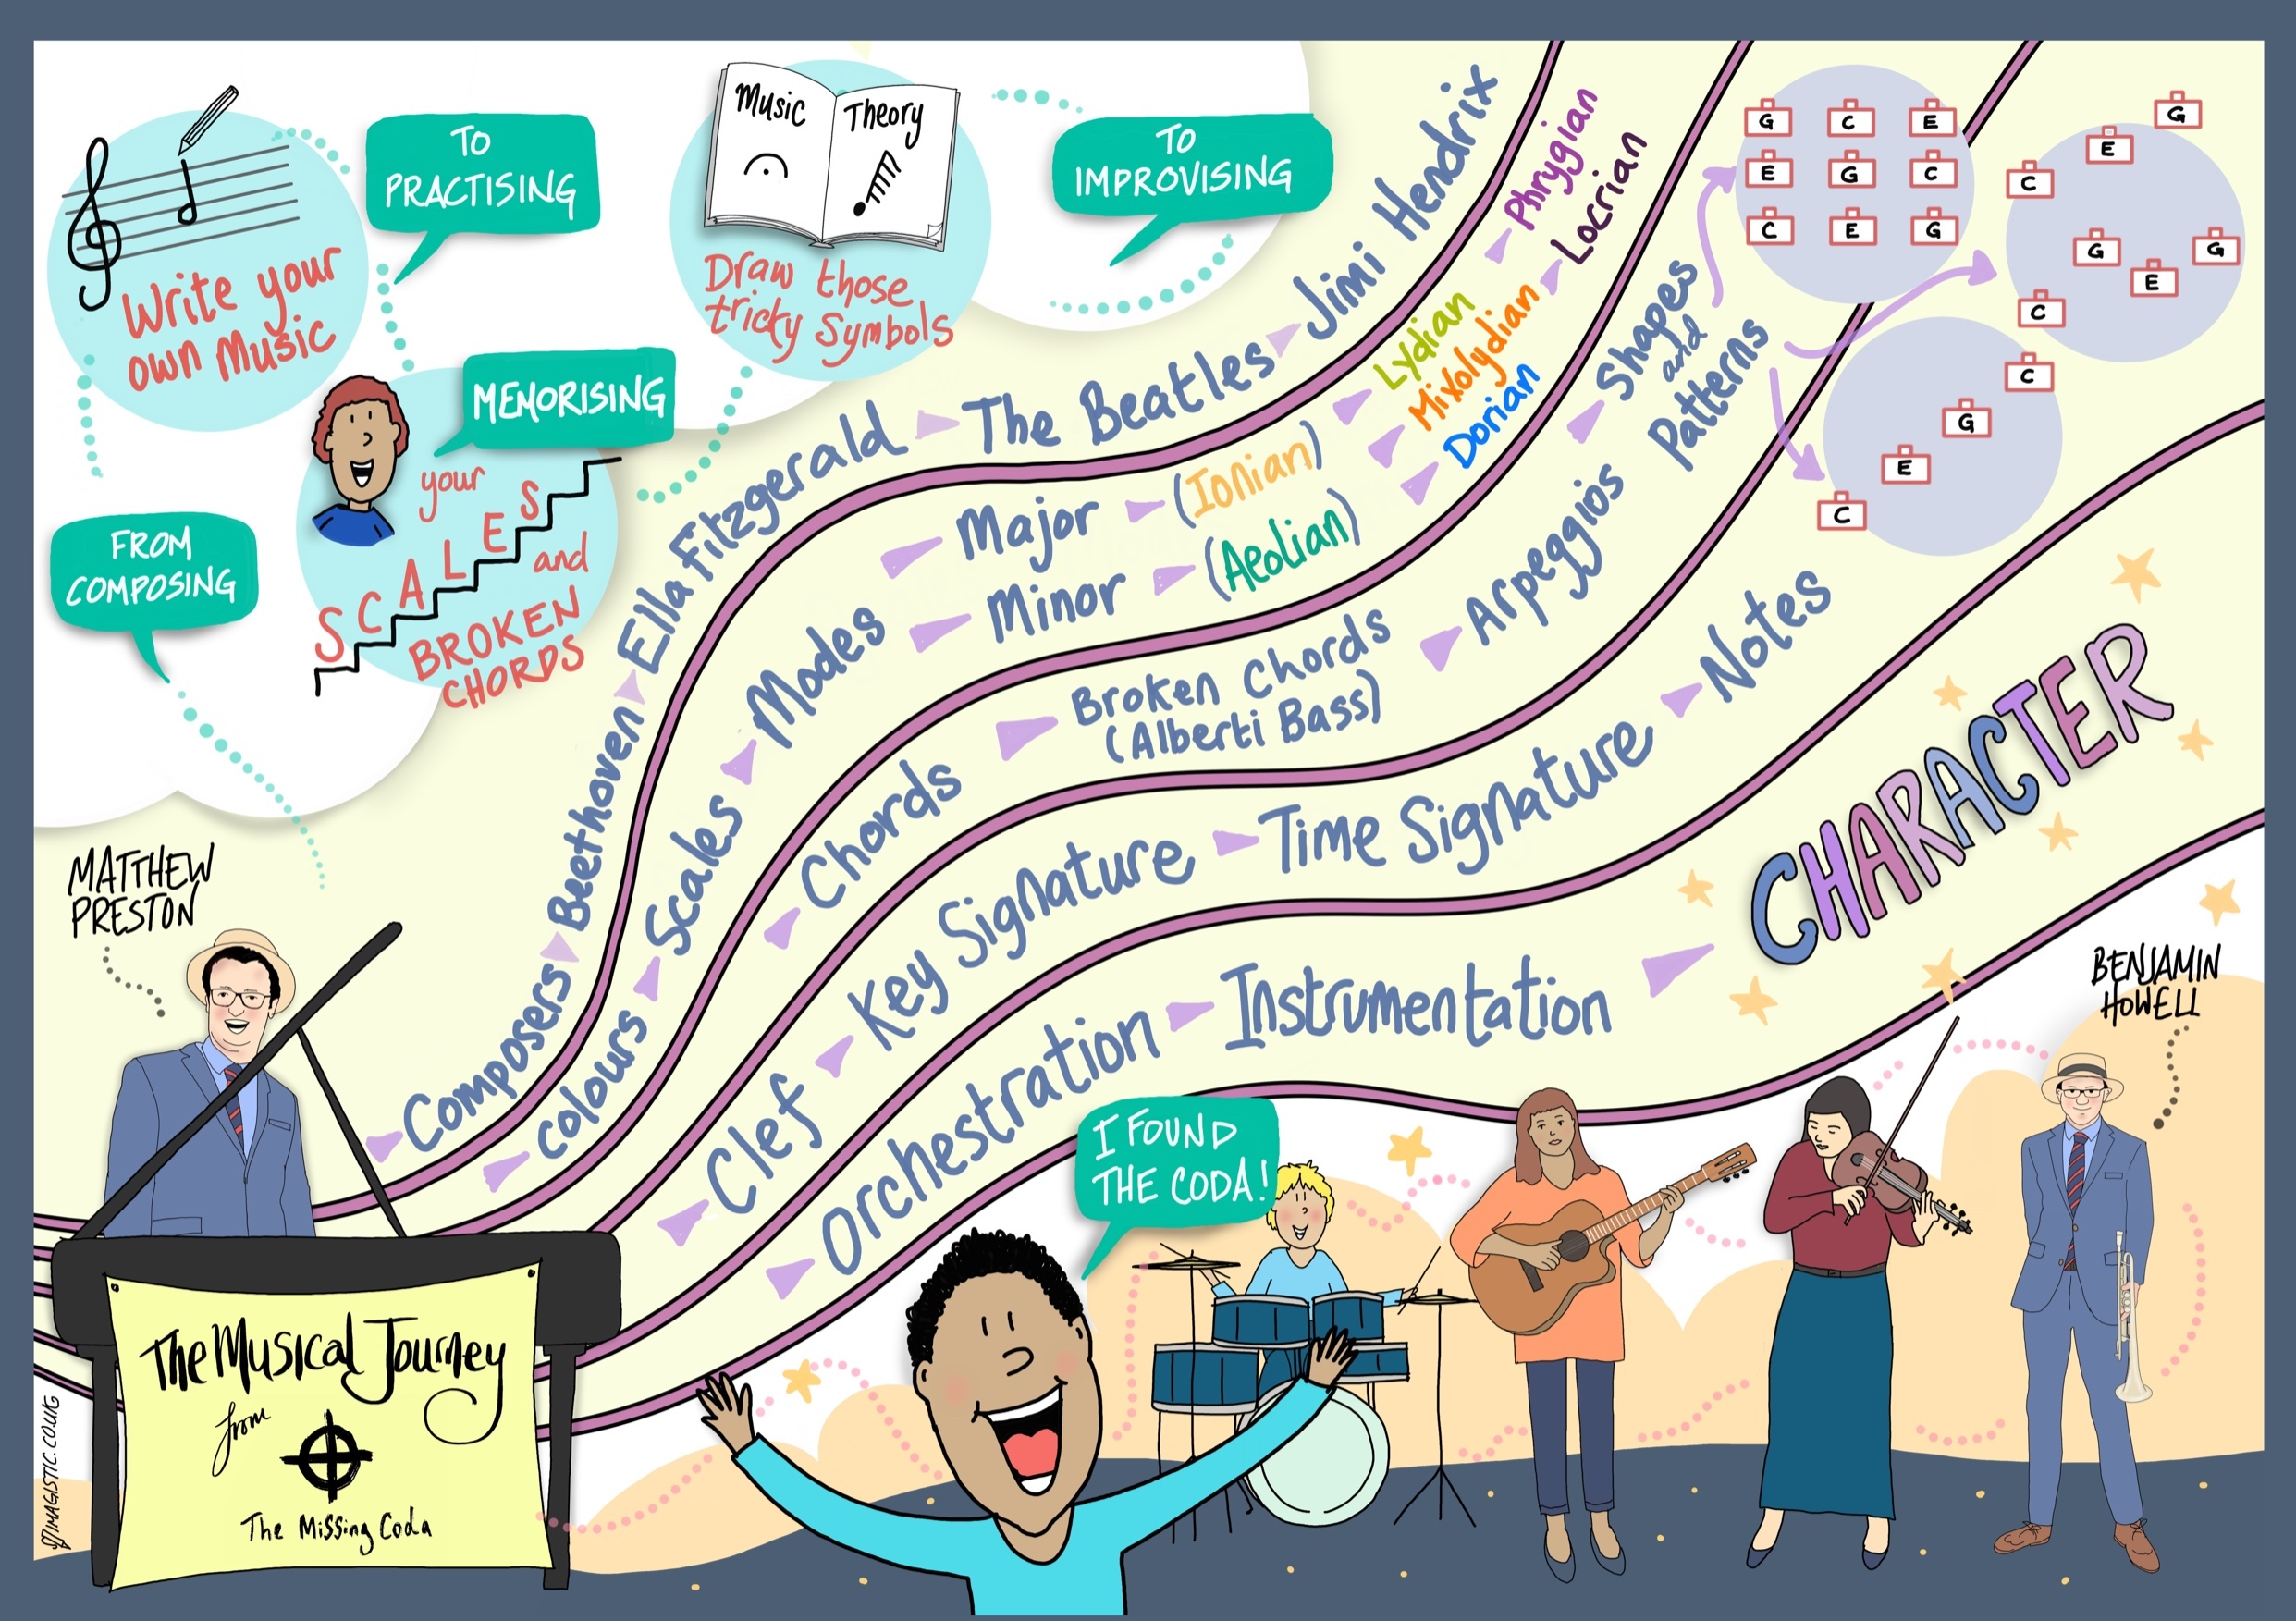 TO
PRACTISING
Write your
own Music
FROM
COMPOSING
MEMORISING
your
SCALES
and
BROKEN
CHORDS
Music
Theory
Draw those
tricky Symbols
TO
IMPROVISING
Composers
Beethoven
Ella Fitzgerald
The Beatles
Jimi Hendrix
Colours
Scales
Modes
Major
(Ionian)
Minor
(Aeolian)
Lydian
Mixolydian
Dorian
Phrygian
Locrian
Chords
Broken Chords
(Alberti Bass)
Arpeggios
Shapes
and
Patterns
G C E
E G C
C E G
G
E
C
G
G
E
C
C
G
E
C
Clef
Key Signature
Time Signature
Notes
Orchestration
Instrumentation
CHARACTER
MATTHEW
PRESTON
BENJAMIN
HOWELL
I FOUND
THE CODA!
The Musical Journey
from
The Missing Coda
IMAGISTIC.CO.UK